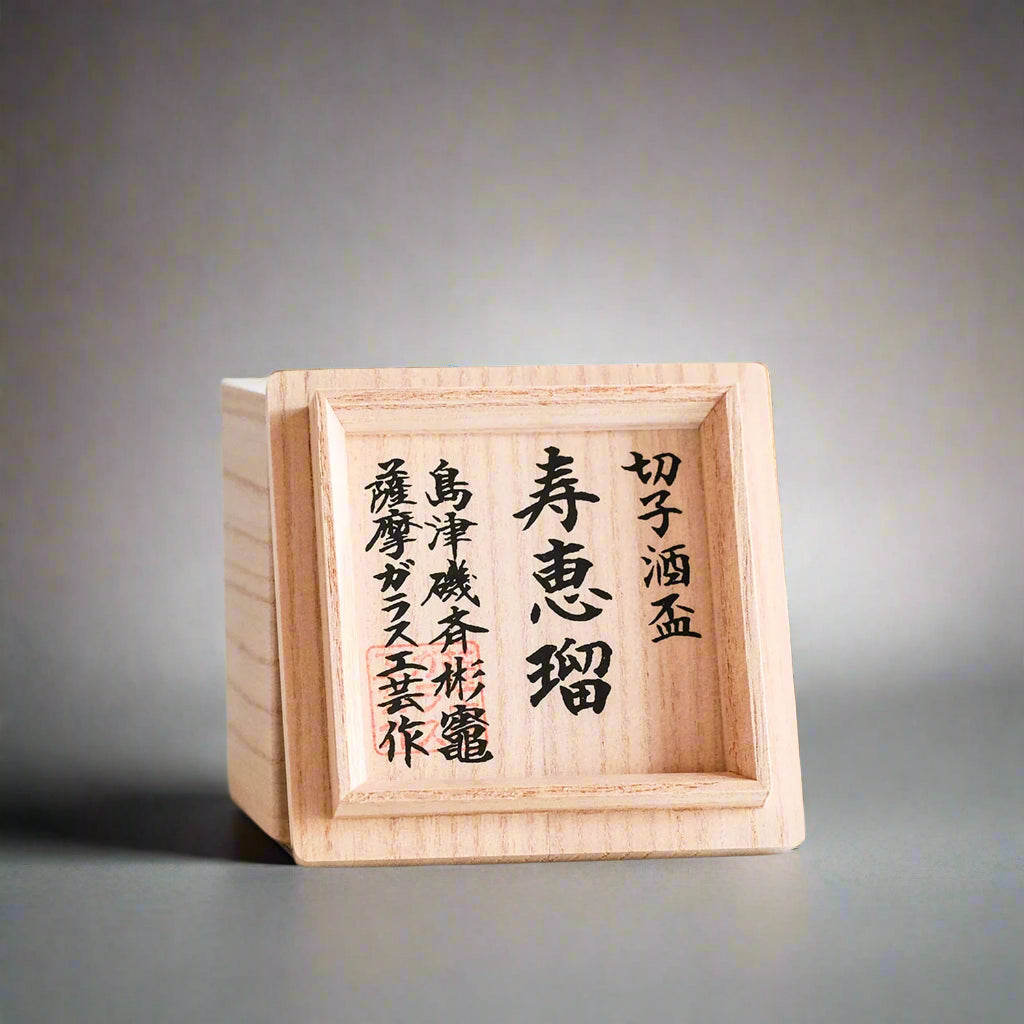 切子酒盃
寿恵瑠
島津磯斉彬竈
薩摩ガラス工芸作